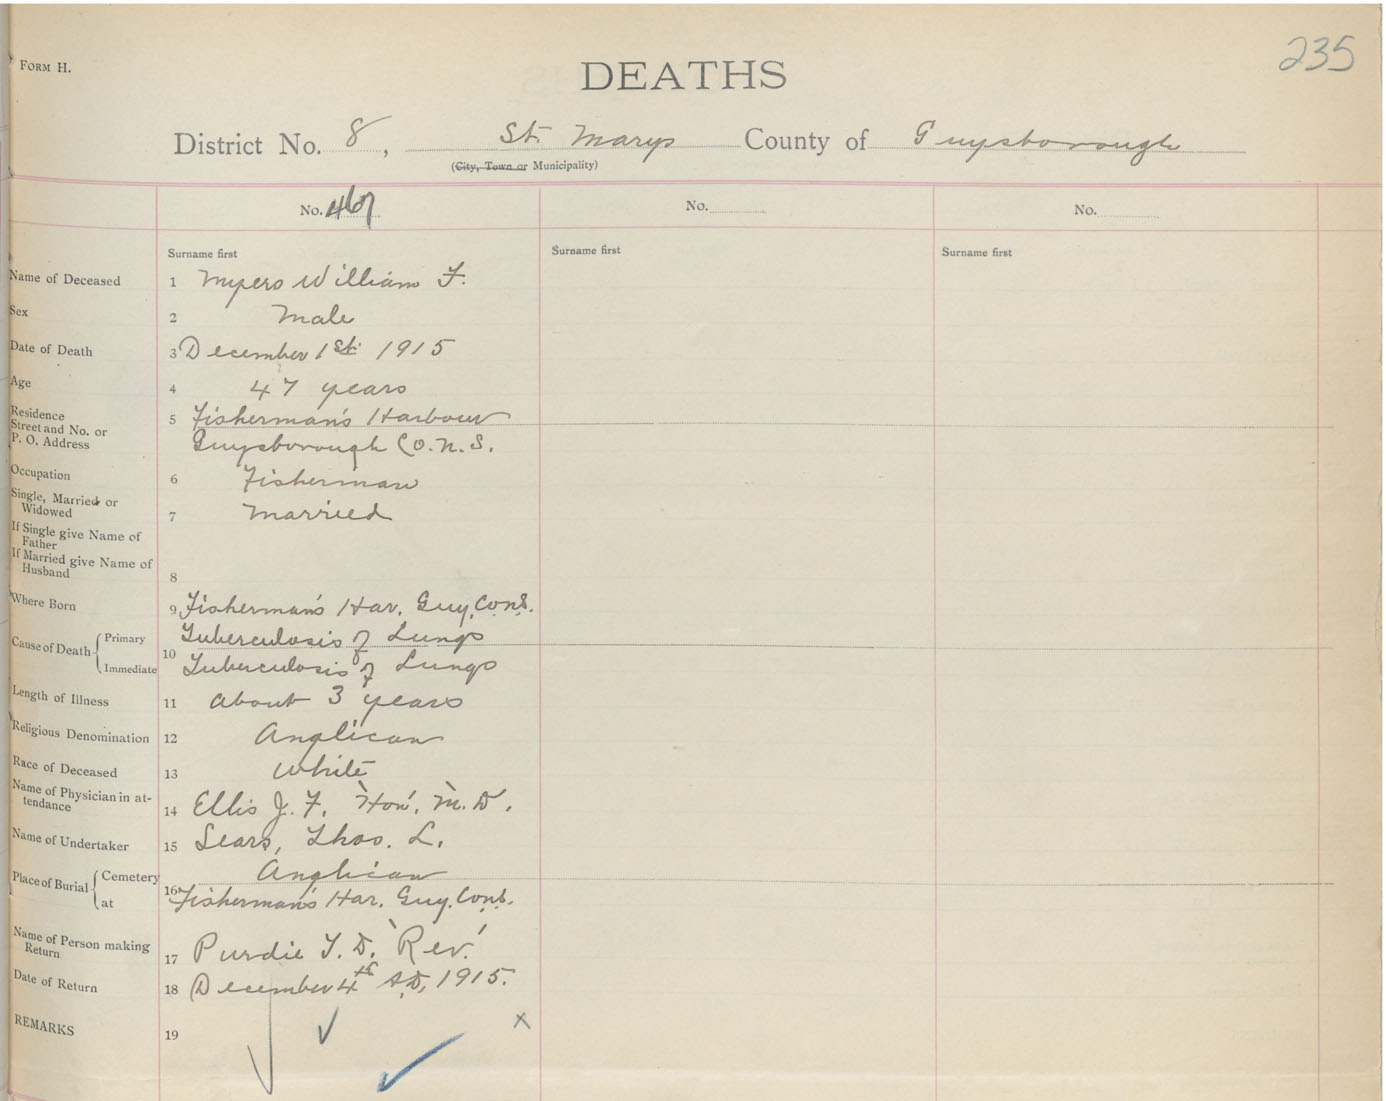 FORM H.
DEATHS
235
District No. 8, St. Marys County of Guysborough
(City, Town or Municipality)
No. 467 No. No.
Surname first Surname first Surname first
Name of Deceased 1 Myers William F.
Sex 2 Male
Date of Death 3 December 1st 1915
Age 4 47 years
Residence
Street and No. or
P. O. Address 5 Fisherman's Harbour
Guysborough Co. N. S.
Occupation 6 Fisherman
Single, Married or
Widowed 7 Married
If Single give Name of
Father
If Married give Name of
Husband 8
Where Born 9 Fisherman's Har. Guy. Co N.S.
Cause of Death Primary Tuberculosis of Lungs
10
Immediate Tuberculosis of Lungs
Length of Illness 11 about 3 years
Religious Denomination 12 Anglican
Race of Deceased 13 White
Name of Physician in at-
tendance 14 Ellis J. F. "Hon". M. D.
Name of Undertaker 15 Sears, Thos. L.
Place of Burial Cemetery Anglican
16
at Fisherman's Har. Guy. Co N.S.
Name of Person making
Return 17 Purdie T. D. 'Rev.'
Date of Return 18 December 4th A.D, 1915.
REMARKS 19 x